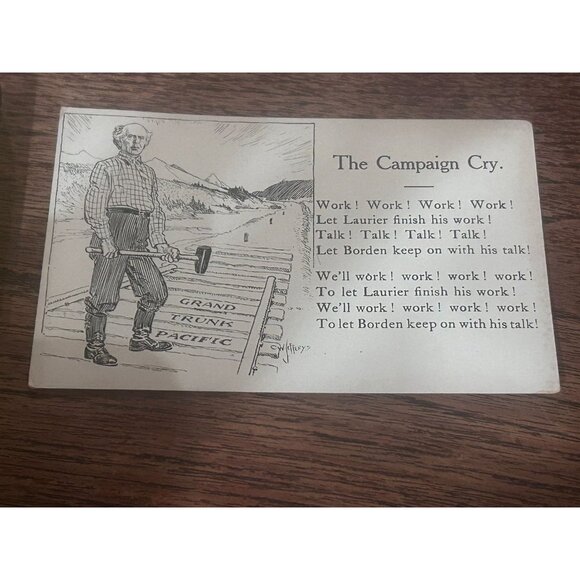 GRAND
TRUNK
PACIFIC
The Campaign Cry.
Work! Work! Work! Work!
Let Laurier finish his work!
Talk! Talk! Talk! Talk!
Let Borden keep on with his talk!
We'll work! work! work! work!
To let Laurier finish his work!
We'll work! work! work! work!
To let Borden keep on with his talk!